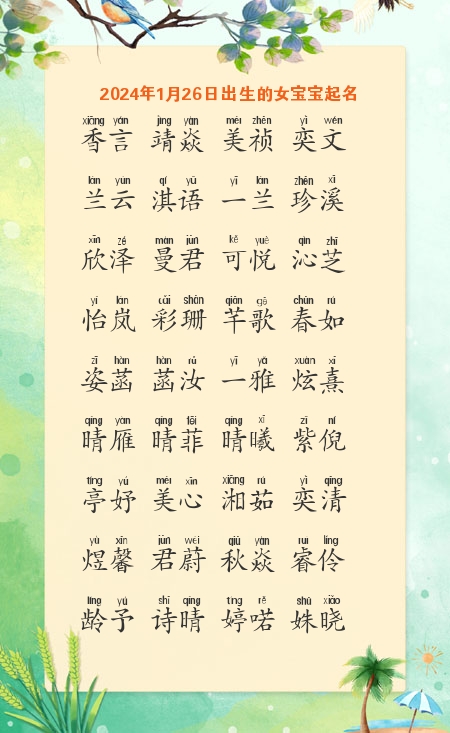 2024年1月26日出生的女宝宝起名
xiāng yán jìng yàn měi zhēn yì wén
香言 靖焱 美祯 奕文
lán yún qí yǔ yī lán zhēn xī
兰云 淇语 一兰 珍溪
xīn zé màn jūn kě yuè qìn zhī
欣泽 曼君 可悦 沁芝
yí lán cǎi shān qiān gē chūn rú
怡岚 彩珊 芊歌 春如
zī hàn hàn rǔ yī yǎ xuàn xī
姿菡 菡汝 一雅 炫熹
qíng yàn qíng fēi qíng xī zǐ ní
晴雁 晴菲 晴曦 紫倪
tíng yú měi xīn xiāng rú yì qīng
亭妤 美心 湘茹 奕清
yù xīn jūn wèi qiū yàn ruì líng
煜馨 君蔚 秋焱 睿伶
líng yǔ shī qíng tíng rě shū xiǎo
龄予 诗晴 婷喏 姝晓